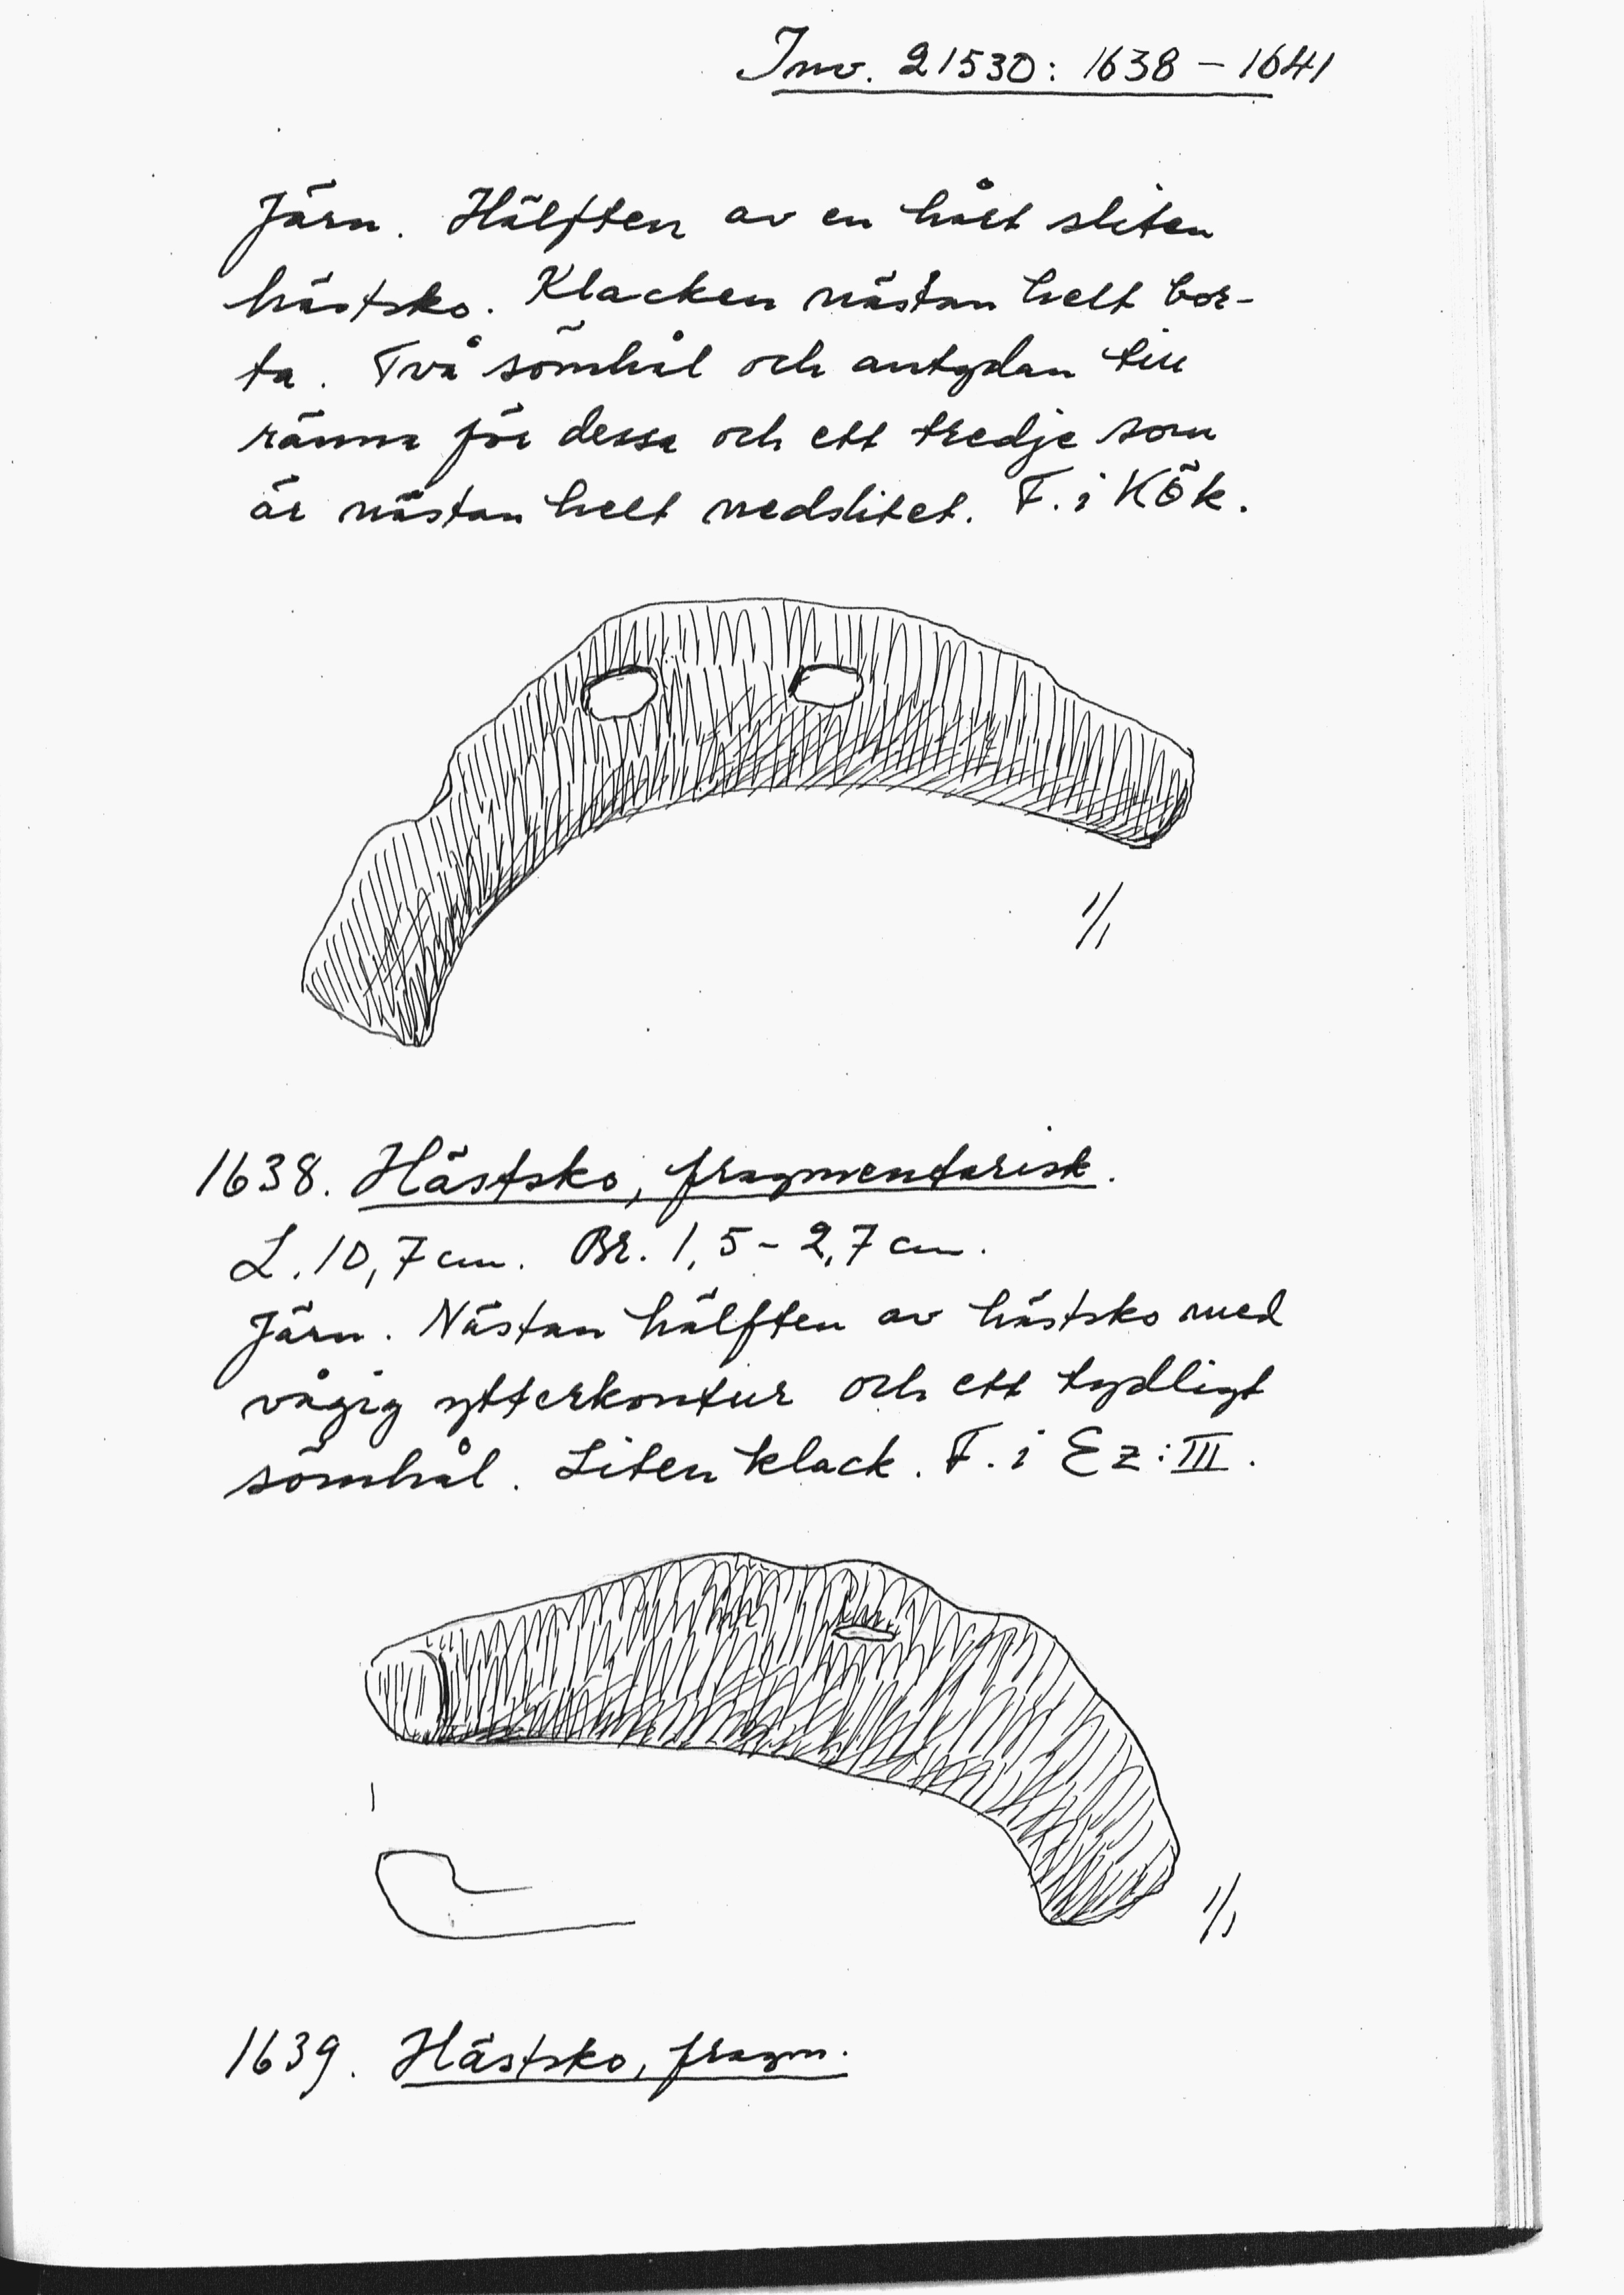 Inv. 21530: 1638 – 1641
Järn. Hälften av en hårt sliten
hästsko. Klacken nästan helt bor-
ta. Två sömhål och antydan till
ränna för dessa och ett tredje som
är nästan helt nedslitet. F. i KÖk.
1/1
1638. Hästsko, fragmentarisk.
L. 10,7 cm. Br. 1,5 – 2,7 cm.
Järn. Nästan hälften av hästsko med
vågig ytterkontur och ett tydligt
sömhål. Liten klack. F. i Ez:III.
1/1
1639. Hästsko, fragm.